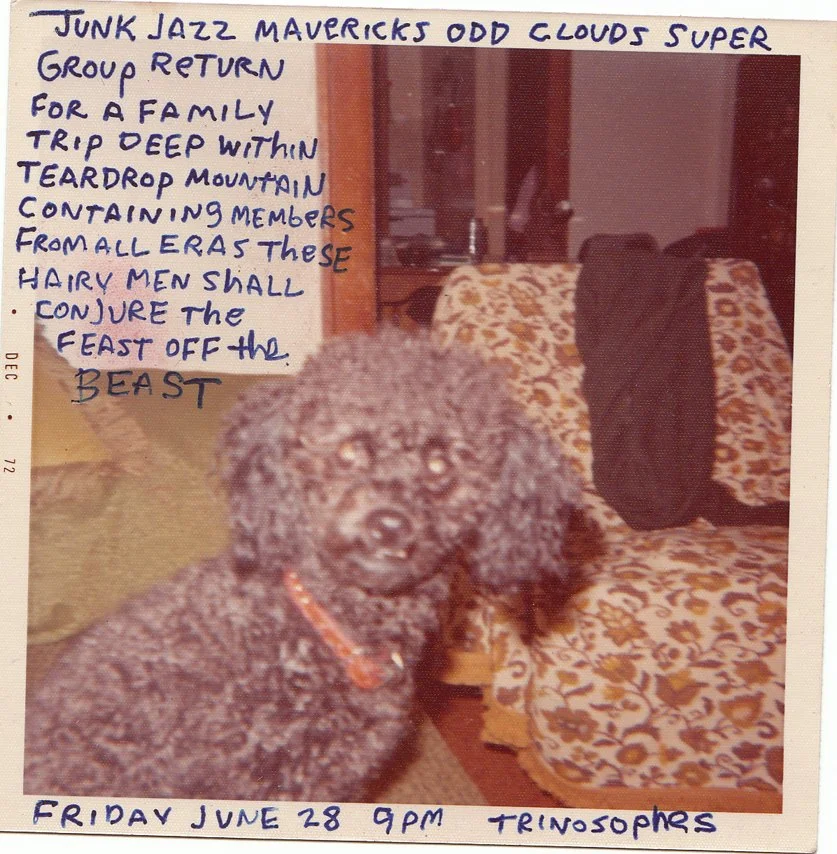 JUNK JAZZ MAVERICKS ODD CLOUDS SUPER
GROUP RETURN
FOR A FAMILY
TRIP DEEP WITHIN
TEARDROP MOUNTAIN
CONTAINING MEMBERS
FROM ALL ERAS THESE
HAIRY MEN SHALL
CONJURE THE
FEAST OFF the
BEAST
DEC • 72
FRIDAY JUNE 28 9PM TRINOSOPHES